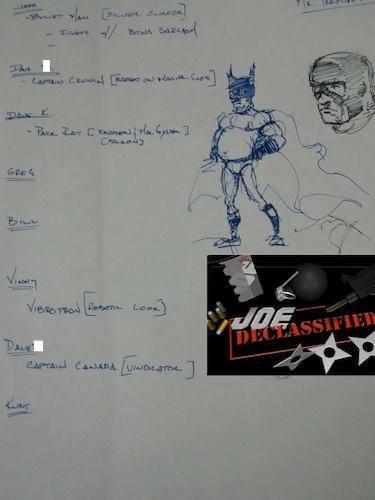 MR.
- BULLET MAN [SILVER SURFER]
- FIGHTS W/ BITING SARCASM
-
DAVE
- CAPTAIN CRUNCH [BASED ON MAJOR GLORY]
DAVE K.
- PACK RAT [EINSTEIN / MACGYVER]
GREG
BILL
VINNY
VIBROTRON [ROBOTIC LOOK]
DALE
CAPTAIN CANADA [VINDICATOR]
KURT
JOE
DECLASSIFIED